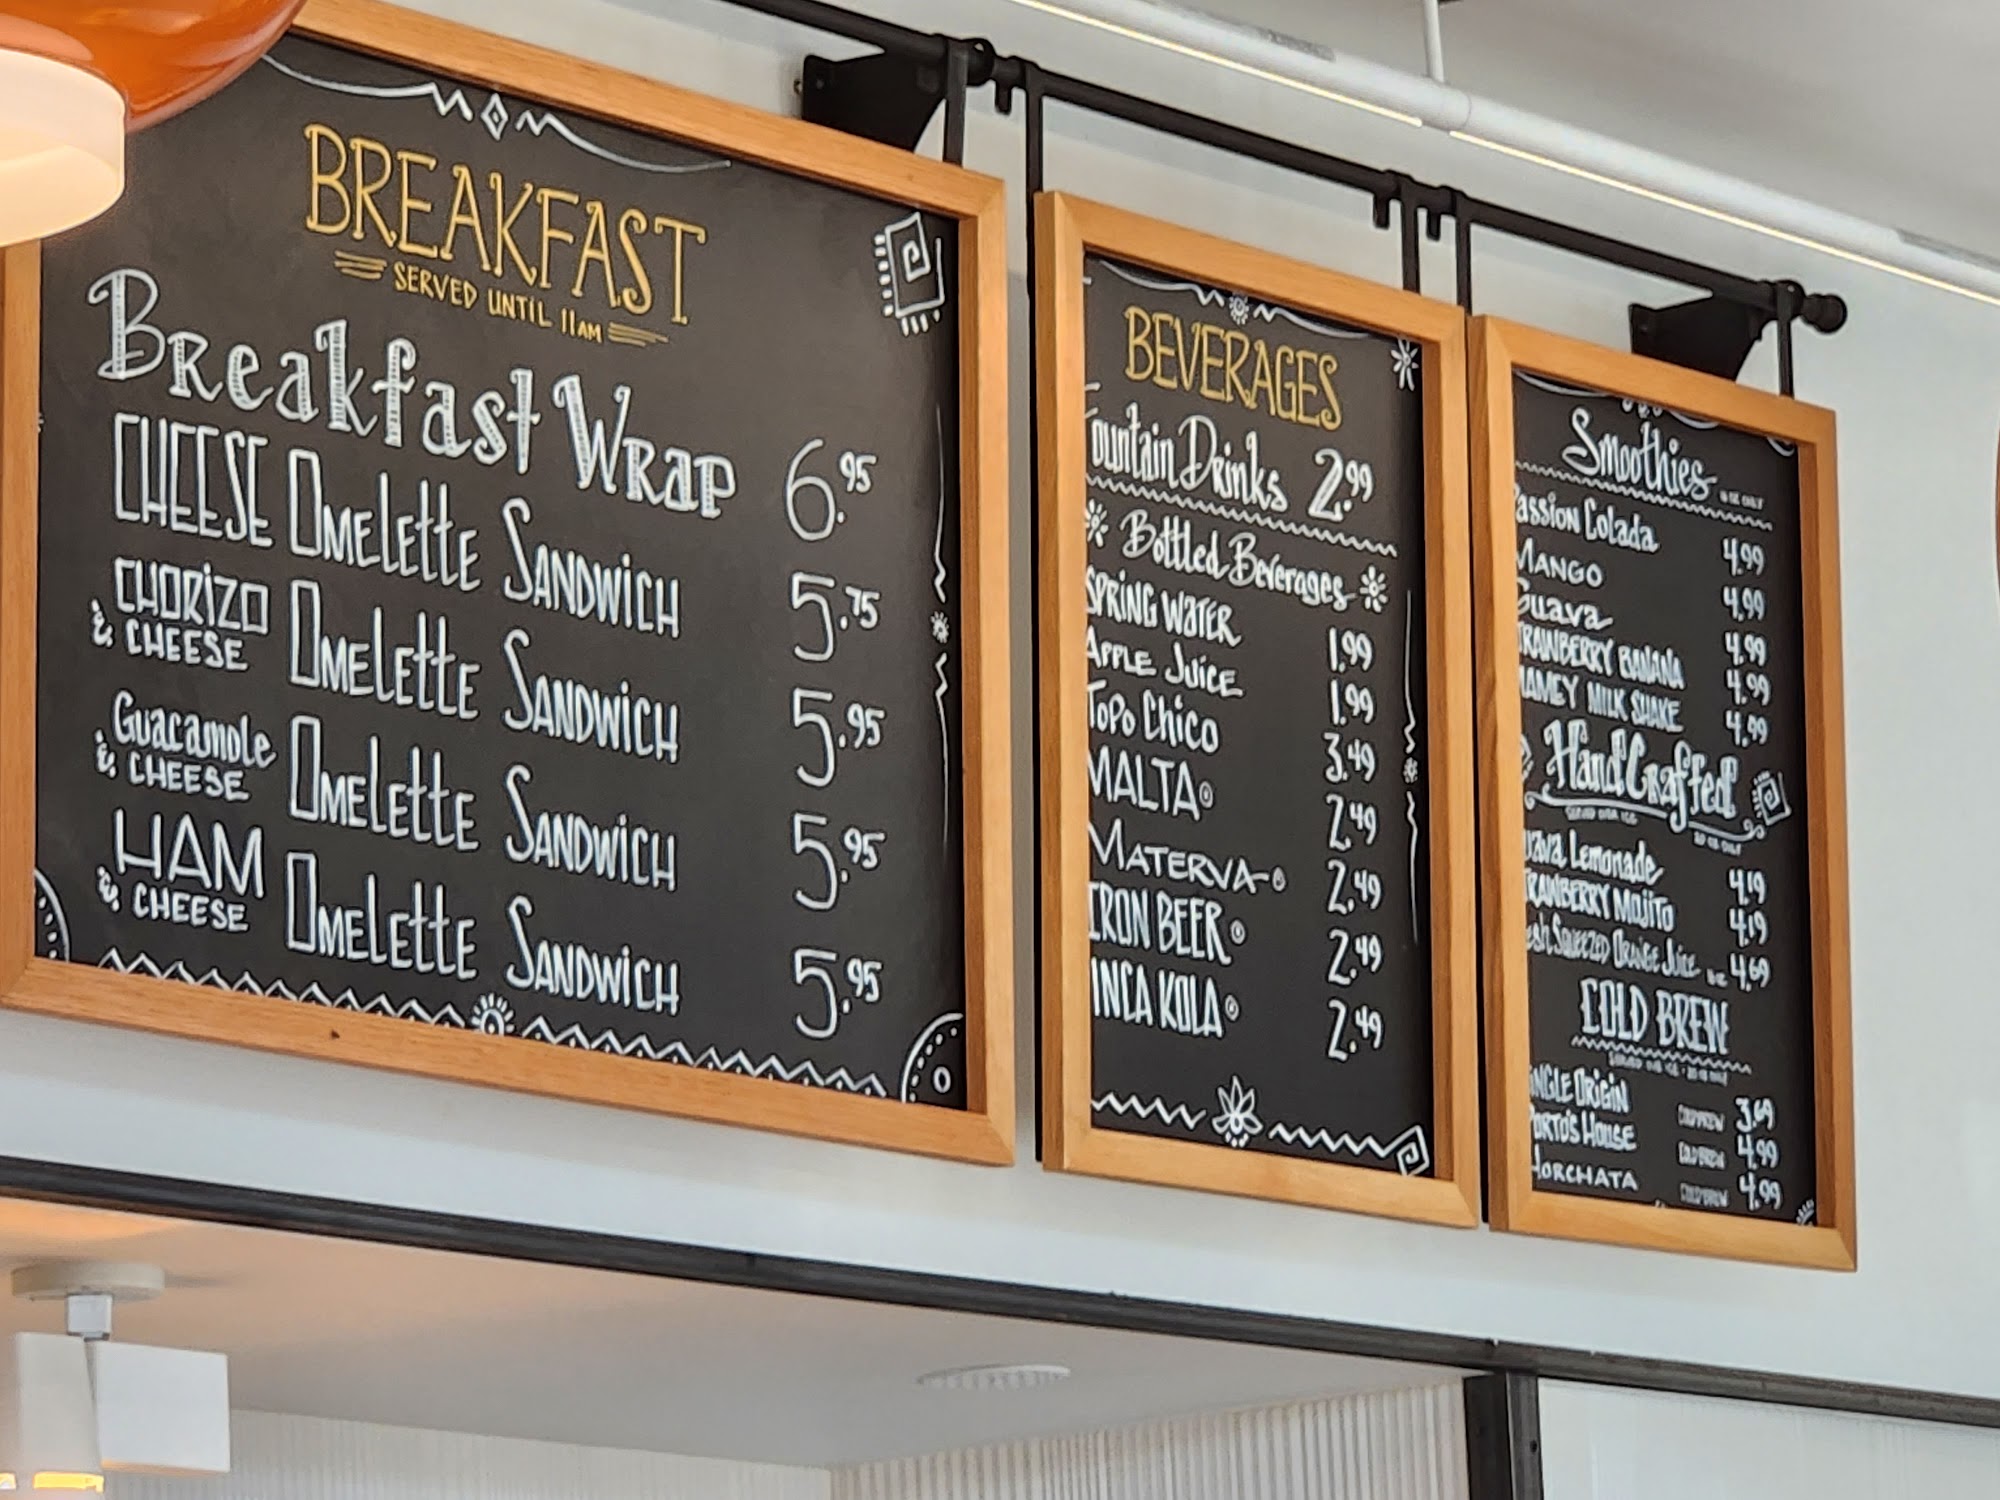 BREAKFAST
SERVED UNTIL 11AM
Breakfast Wrap 6.95
CHEESE Omelette Sandwich 5.75
CHORIZO & CHEESE Omelette Sandwich 5.95
Guacamole & CHEESE Omelette Sandwich 5.95
HAM & CHEESE Omelette Sandwich 5.95
BEVERAGES
Fountain Drinks 2.99
Bottled Beverages
SPRING WATER 1.99
APPLE JUICE 1.99
Topo Chico 3.49
MALTA 2.49
MATERVA 2.49
IRON BEER 2.49
INCA KOLA 2.49
Smoothies
Passion Colada 4.99
MANGO 4.99
Guava 4.99
STRAWBERRY BANANA 4.99
MAMEY MILK SHAKE 4.99
HandCrafted
SERVED OVER ICE
Guava Lemonade 4.19
STRAWBERRY MOJITO 4.19
Fresh Squeezed Orange Juice 4.69
COLD BREW
SINGLE ORIGIN COLD BREW 3.69
PORTO'S HOUSE COLD BREW 4.99
HORCHATA COLD BREW 4.99